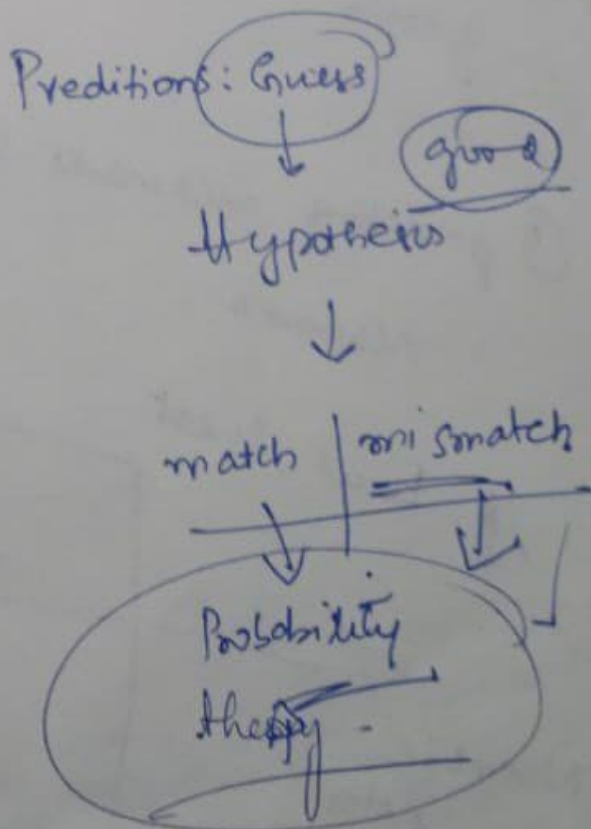 Preditions: Guess
good
Hypothesis
match | mismatch
Probability
theory